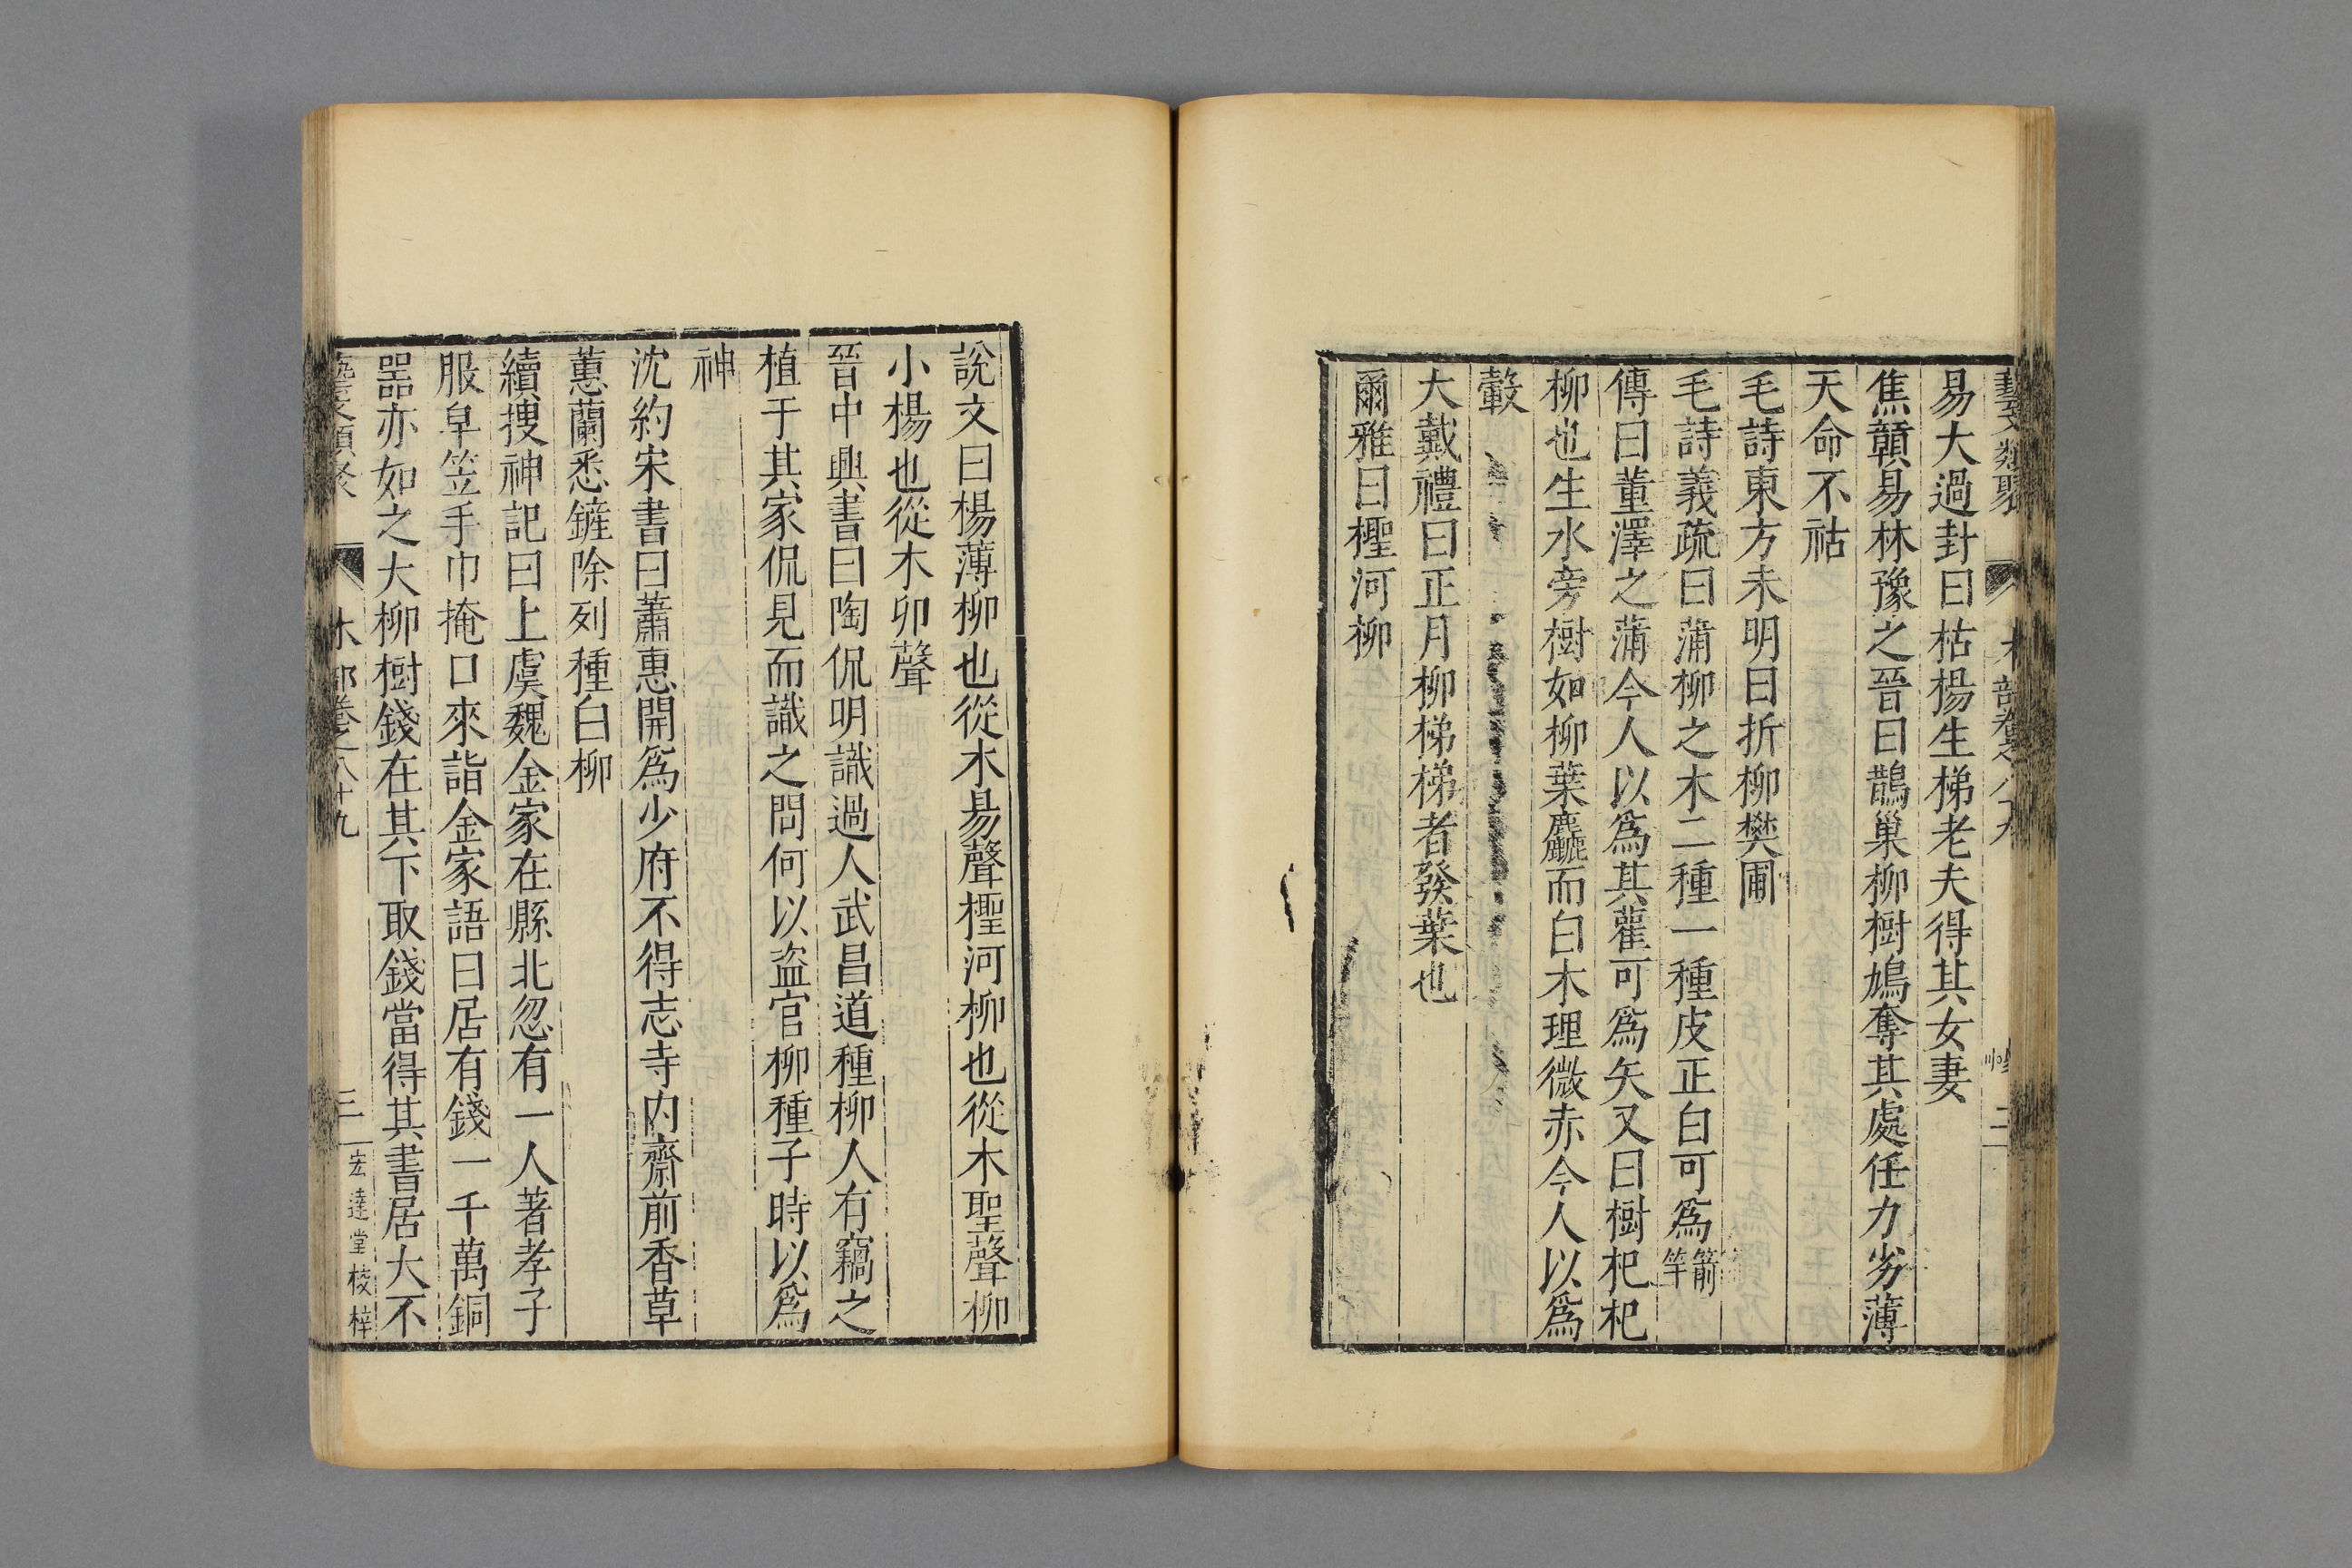 藝文類聚 木部卷之八十九 三
易大過封曰枯楊生梯老夫得其女妻
焦贑易林豫之晉曰鵲巢柳樹鳩奪其處任力劣薄
天命不祜
毛詩東方未明曰折柳樊圃
毛詩義疏曰蒲柳之木二種一種皮正白可爲箭竿
傳曰董澤之蒲今人以爲其雚可爲矢又曰樹杞杞
柳也生水旁樹如柳葉麤而白木理微赤今人以爲
轂
大戴禮曰正月柳梯梯者發葉也
爾雅曰檉河柳
說文曰楊薄柳也從木昜聲檉河柳也從木聖聲柳
小楊也從木卯聲
晉中興書曰陶侃明識過人武昌道種柳人有竊之
植于其家侃見而識之問何以盜官柳種子時以爲
神
沈約宋書曰蕭惠開爲少府不得志寺内齋前香草
蕙蘭悉鏟除列種白柳
續搜神記曰上虞魏金家在縣北忽有一人著孝子
服皁笠手巾掩口來詣金家語曰居有錢一千萬銅
噐亦如之大柳樹錢在其下取錢當得其書居大不
藝文類聚 木部卷之八十九 三 宏達堂校梓